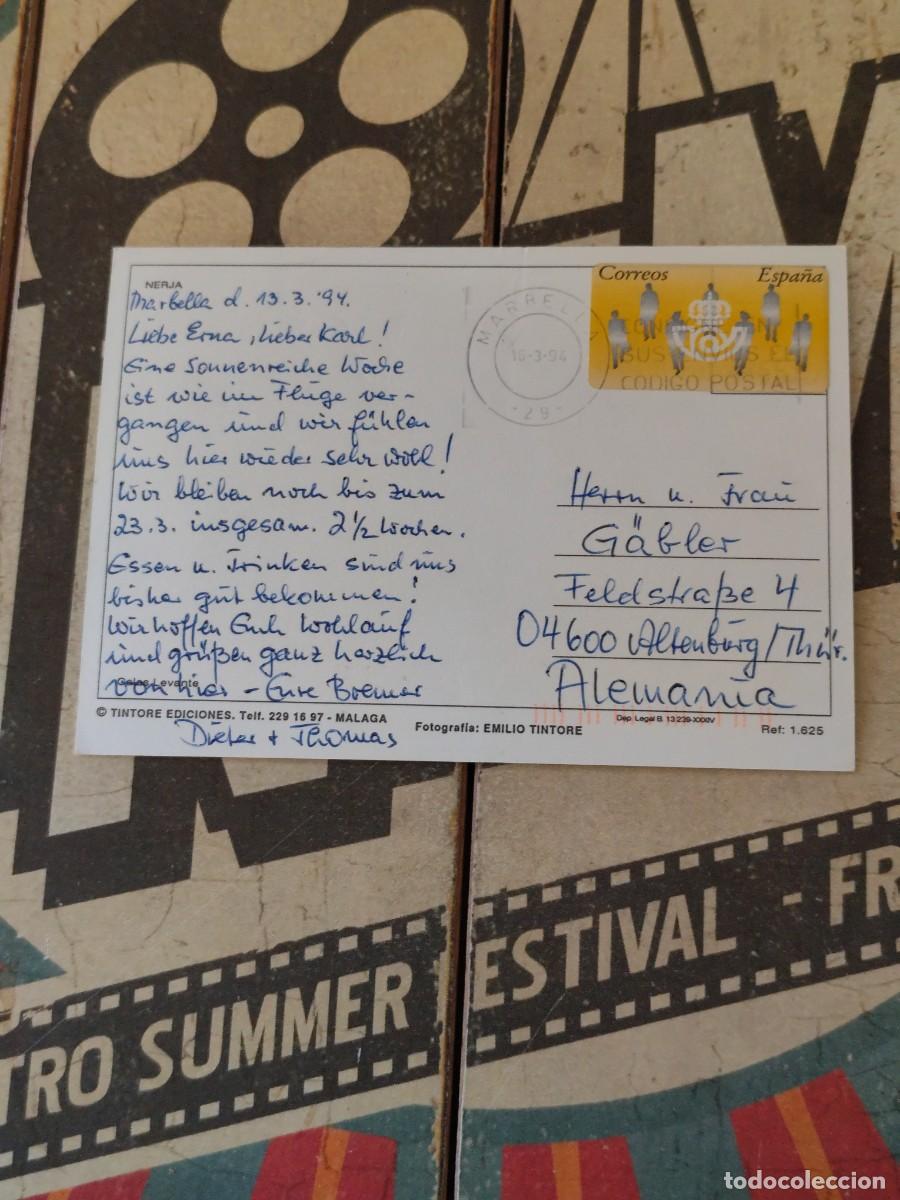 NERJA
Marbella d. 13.3.'94.
Liebe Erna, lieber Karl!
Eine sonnenreiche Woche
ist wie im Fluge ver-
gangen und wir fühlen
uns hier wieder sehr wohl!
Wir bleiben noch bis zum
23.3. insgesam. 2 1/2 Wochen.
Essen u. Trinken sind uns
bisher gut bekommen!
Wir hoffen Euch wohlauf
und grüßen ganz herzlich
von hier - Eure Bremer
Dieter + Thomas
Calas Levante
© TINTORE EDICIONES. Telf. 229 16 97 - MALAGA
Fotografía: EMILIO TINTORE
Dep. Legal B. 13.239-XXXIV
Ref: 1.625
Correos España
MARBELLA
16-3-94
-29-
CODIGO POSTAL
Herrn u. Frau
Gäbler
Feldstraße 4
04600 Altenburg/Thür.
Alemania
TRO SUMMER ESTIVAL - FR
todocoleccion